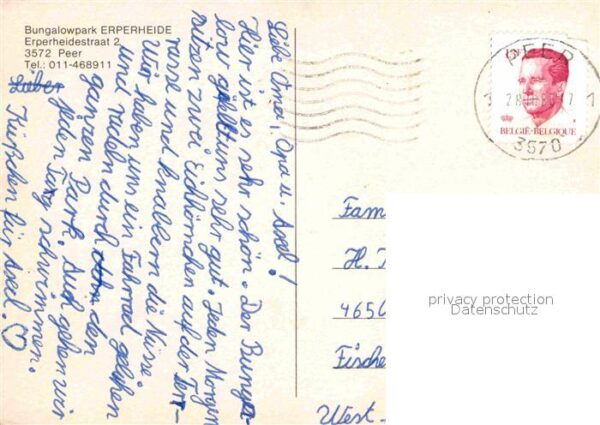 Bungalowpark ERPERHEIDE
Erperheidestraat 2
3572 Peer
Tel.: 011-468911
Liebe Oma, Opa u. Axel!
Hier ist es sehr schön. Der Bunga-
low gefällt uns sehr gut. Jeden Morgen
sitzen zwei Eichhörnchen auf der Terr-
rasse und knabbern die Nüsse.
Wir haben uns ein Fahrrad geliehen
und radeln durch den
ganzen Park. Auch gehen wir
jeden Tag schwimmen.
Küßchen für Axel. ♡
Lieber
PEER
3570
BELGIË-BELGIQUE
Fam
H.
4650
Fische
West-
privacy protection
Datenschutz